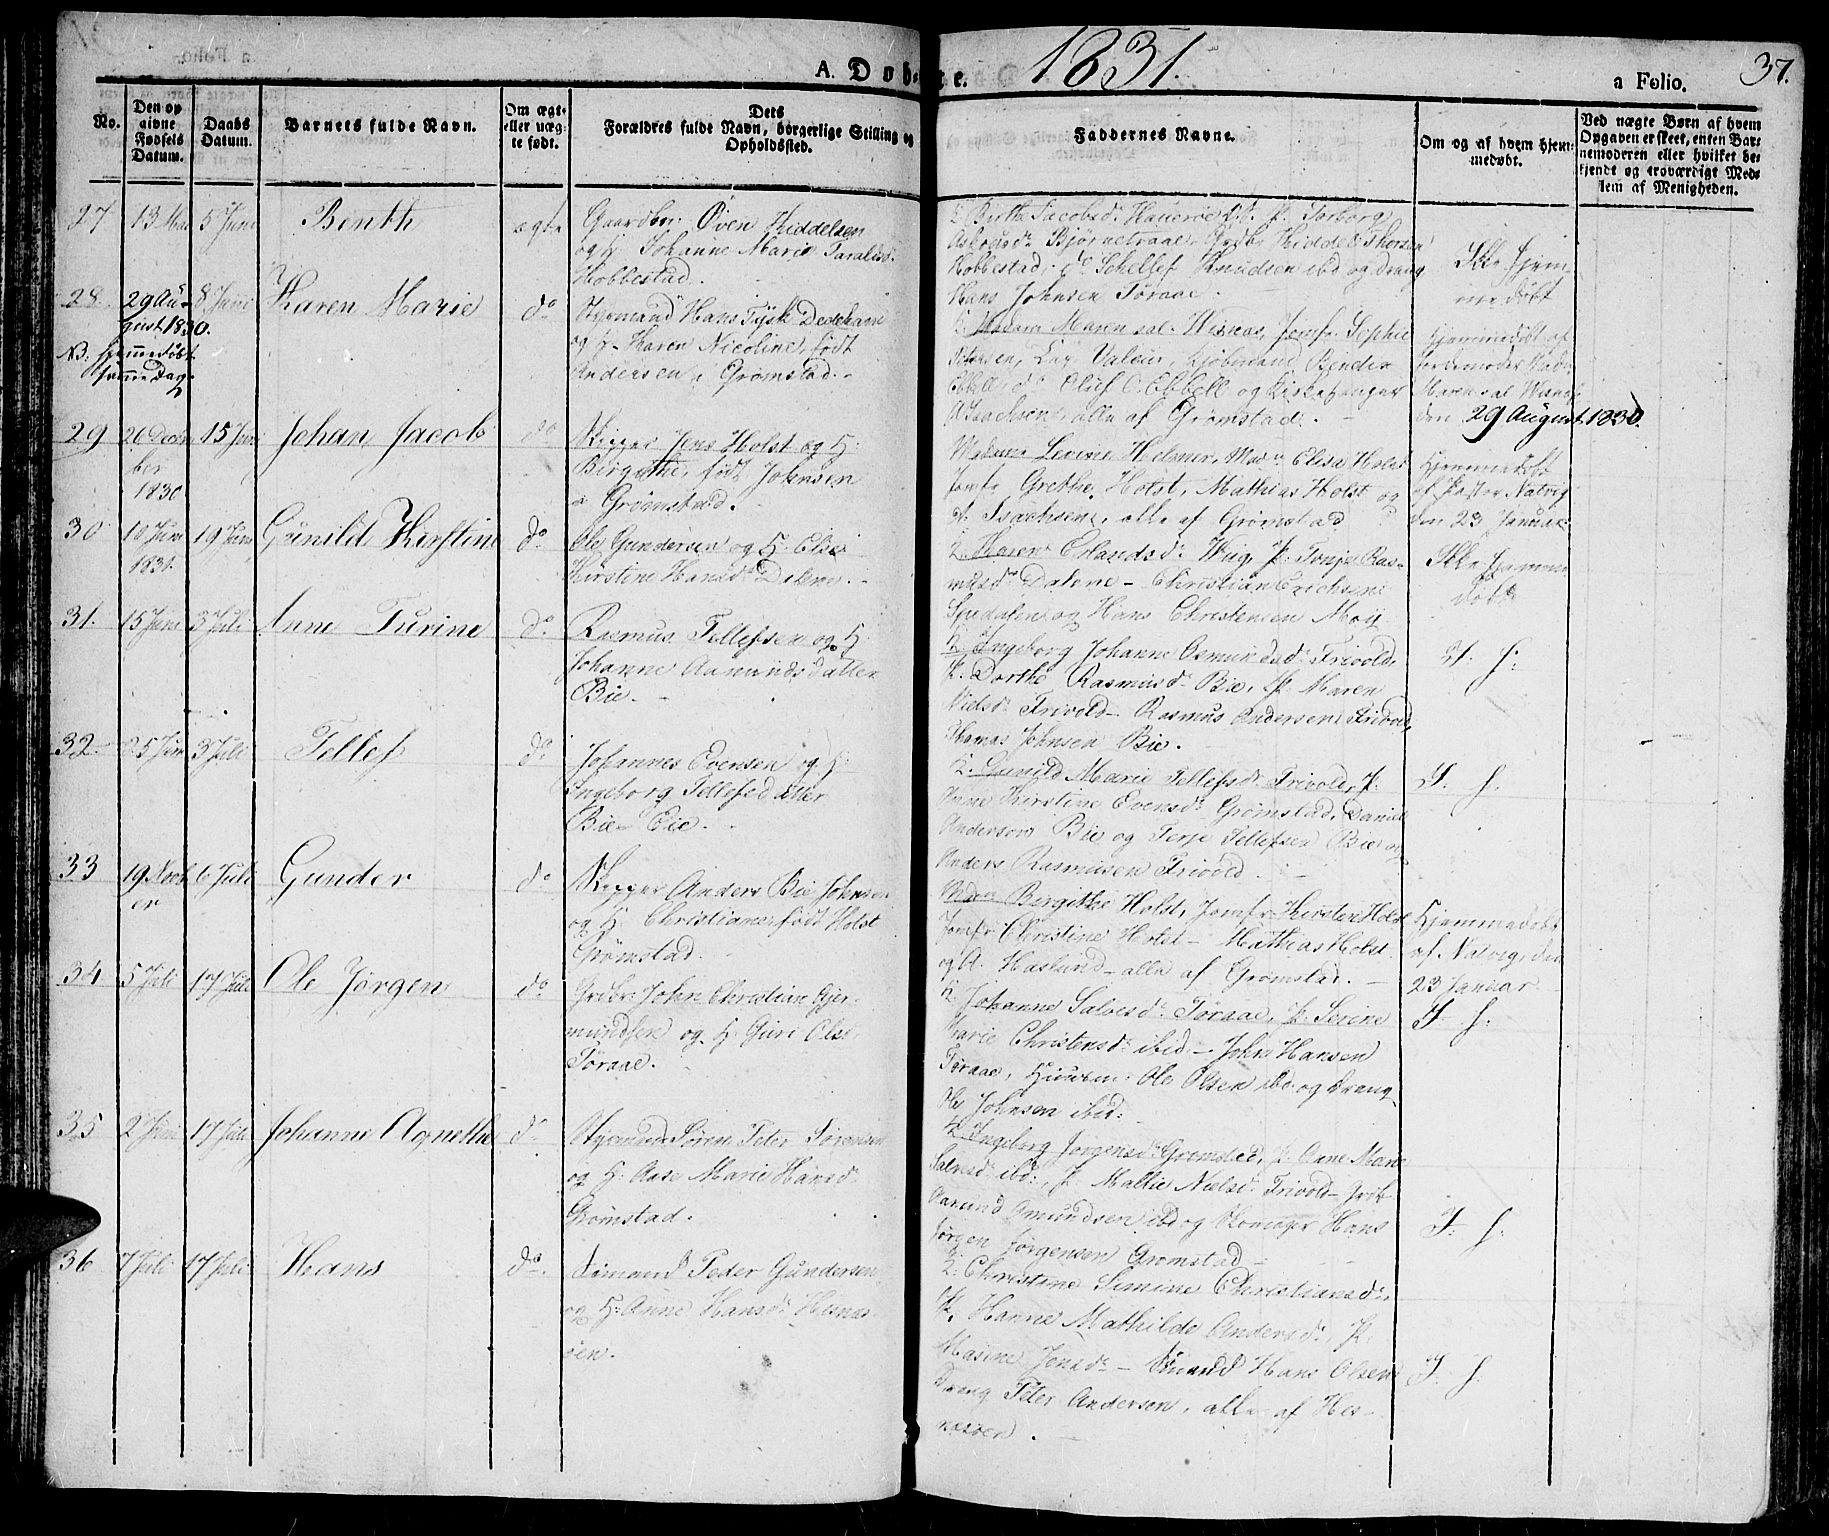 A. Døb-
te.
1831.
a Folio.
37.
No.
Den op
givne
Fødsels
Datum.
Daabs
Datum.
Barnets fulde Navn.
Om ægt-
eller uæg-
te født.
Dets
Forældres fulde Navn, borgerlige Stilling og
Opholdssted.
Faddernes Navne.
Om og af hvem hjem-
medøbt.
Ved uægte Børn af hvem
Opgaven er skeet, enten Bar-
nemoderen eller hvilket be-
kjendt og troværdigt Med-
lem af Menigheden.
27 13 Mai 5 Juni Benth ægte
Gaardbr: Øven Kiddelsen
og H. Johanne Marie Taralsd.
Hobbestad.
K. Birthe Jacobsd. P. Torborg
Bjørnetraae, Grdbr Kiddel Thorsen
Hobbestad, do Schellef Knudsen ibid og drang
Hans Johnsen Tøraae.
Ikke hjem-
medøbt
28. 29 Au-
gust 1830. 8 Juni Karen Marie do
NB: hjemmedøbt
samme Dag.
Styrmand Hans Tysk Dedekam
og H. Karen Nicoline, født
Andersen, Grømstad.
K. Madam Maren sal. Jomfr Sophie
Petersen, Valeur, Kjøbmand
Ebbell, do Oluf O. Ebbell og Kirkesanger
Isachsen, alle af Grømstad.
Hjemmedøbt af
Jordemoder Mad.
Maren sal
den 29 August 1830.
29 26 Decem-
ber
1830 15 Juni Johan Jacob do
Skipper Jens Holst og H:
Birgithe, født Johnsen
Grømstad.
Madame Helmer, Mad. Elisa Holst
Jomfr Grethe Holst, Mathias Holst og
A. Isachsen, alle af Grømstad
Hjemmedøbt
af Pastor Natvig
den 23 Januar
30 10 Juni
1831. 19 Juni Gunild Kirstine do
Ole Gundersen og H. Else
Kirstine Hansd. Dalene.
K. Karen Erlandsd. P. Tonje Ras-
musd. Dalene - Christian Erichsen
og Hans Christensen Moy
Ikke hjemme-
døbt
31. 15 Juni 3 Juli Anne Turine do.
Rasmus Tellefsen og H
Johanne Aamundsdatter
Bie.
K. Ingeborg Johanne Osmundsd. Frivold,
P. Dorthe Rasmusd. Bie, P. Maren
Nielsd. Frivold - Rasmus Andersen Frivold,
Thomas Johnsen Bie.
I. h:
32 25 Juni 3 Juli Tellef do
Johannes Evensen og H:
Ingeborg Tellefsdatter
Bie Eie.
K. Gunild Marie Tellefsd. Frivold, P.
Anne Kirstine Evensd. Grømstad, Daniel
Andersen Bie og Terje Tellefsen Bie og
Anders Rasmusen Frivold.
I. h.
33 19 Novb
er 6 Juli Gunder do
Skipper Anders Bie Johnsen
og H. Christiane, født Holst
Grømstad.
Madm Birgithe Holst, Jomfr Kirsten Holst
Jomfr Christine Holst - Mathias Holst
og A. Haslund - alle af Grømstad.
Hjemmedøbt
af Natvig, den
23 Januar
34 5 Juli 17 Juli Ole Jørgen do
Grdbr: John Christian Gjer-
mundsen og H. Guri Olsd.
Tøraae.
K. Johanne Salvesd. Tøraae, P. Serine
Marie Christensd. ibid - John Hansen
Tøraae, Ole Olsen ibd. og drang
Ole Johnsen ibid:
I. h.
35 2 Juni 17 Juli Johanne Agnethe do
Styrmand Søren Peter Sørensen
og H. Aase Marie Hansd.
Grømstad.
K. Ingeborg Jørgensd. Grømstad, P. Anne Marie
Salvesd. ibd:, P. Mallie Nielsd. Frivold -
Aamund Amundsen ibd og Skomager Hans
Jørgen Jørgensen Grømstad
I. h.
36 7 Juli 17 Juli Hans do.
Sømand Peder Gundersen
og H: Anne Hansd. Hesnæs-
øen.
K. Christine Simine Christiansd.,
P. Hanne Mathilde Andersd. P.
Masine Jensd. - Sømand Hans Olsen
Drang Peter Andersen, alle af Hes-
næsøen.
I. h.